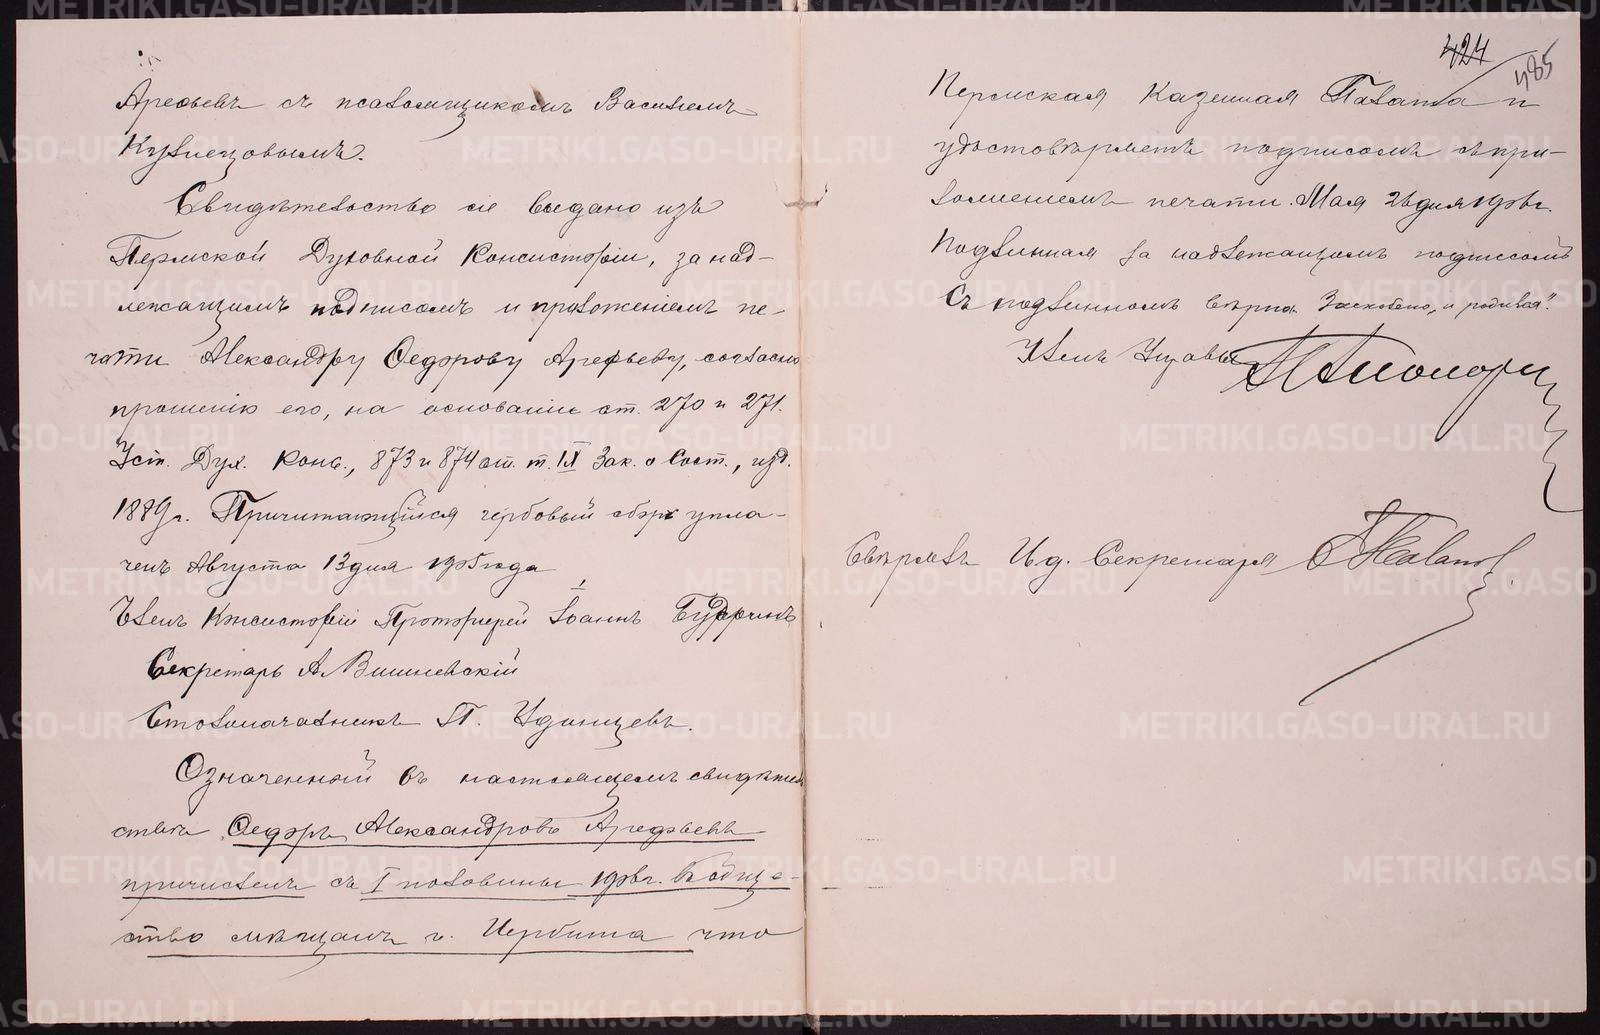 Арефьевъ съ псаломщикомъ Василіемъ
Кузнецовымъ.
Свидѣтельство сіе выдано изъ
Пермской Духовной Консисторіи, за над-
лежащимъ подписомъ и приложеніемъ пе-
чати Александру Ѳедорову Арефьеву, согласно
прошенію его, на основаніи ст. 270 и 271.
Уст. Дух. Конс., 873 и 874 ст. т. IX Зак. о Сост., изд.
1889 г. Причитающійся гербовый сборъ упла-
ченъ Августа 13 дня 1905 года
Членъ Консисторіи Протоіерей Іоаннъ
Секретарь А. Вишневскій
Столоначальникъ П. Удинцевъ.
Означенный въ настоящемъ свидѣтель
ствѣ Ѳедоръ Александровъ Арефьевъ
причисленъ съ I половины 1906 г. въ обще-
ство мѣщанъ г. Ирбита что
424
485
Пермская Казенная Палата и
удостовѣряетъ подписомъ съ при-
ложеніемъ печати. Мая 26 дня 1906 г.
Подлинная за надлежащимъ подписомъ
Съ подлиннымъ вѣрно. Заскоблено, и
Членъ Управы
Свѣрялъ И.д. Секретаря
METRIKI.GASO-URAL.RU